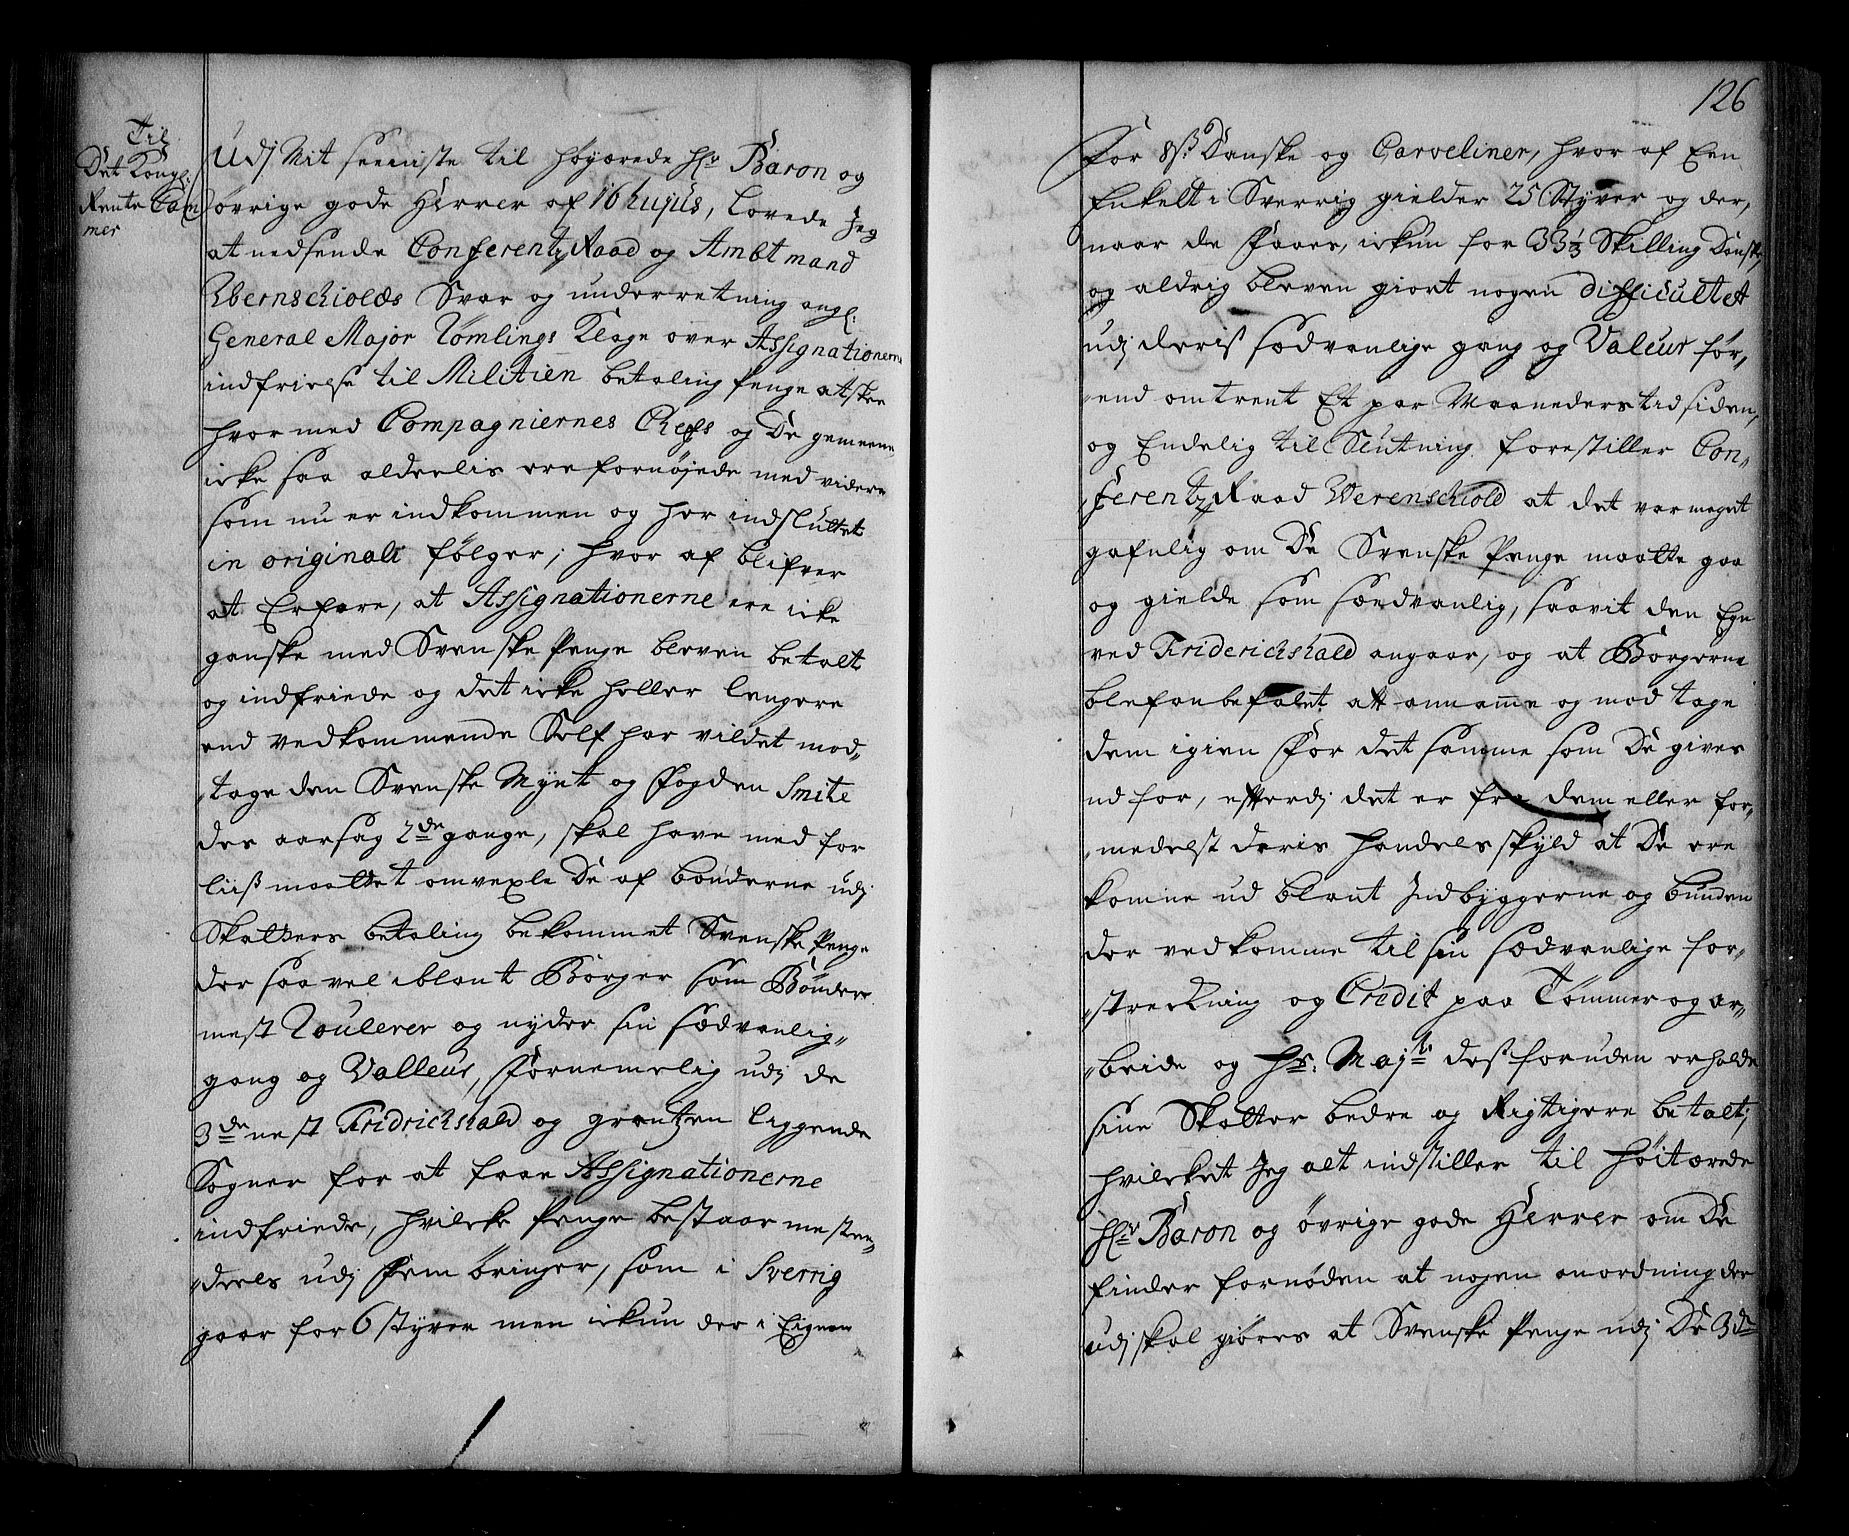 Til
Det Kongl:
Rente Cam
mer
Udj Mit seeniste til høyærede Hr Baron og
øvrige gode Herrer af 16 hujus, lovede Jeg
at nedsende Conferentz Raad og Ambtmand
Wernschiolds Svar og underretning angl:
General Major Tømlings Klage over Assignationerne
indfrielse til Militien betaling Penge at skee
hvormed Compagniernes Chefs og De gemeene
icke saa alderlis ere fornøjede med videre
som nu er indkommen og her indsluttet
in originali følger; hvor af blifver
at Erfare, at Assignationerne ere icke
ganske med Svenske Penge bleven betalt
og indfriede og det icke heller lengere
end vedkommende Self har vildet mod„
„tage den Svenske Mynt og Fogden Smite
der aarsag 2de gange, skal have med for
liiß maattet omvexle De af bønderne udj
Skatters betaling bekommet Svenske Penge
der saa vel iblant Borger som Bønder
mest Roulerer og nyder sin sædvanlig„
gang og Valleur, Fornemelig udj de
3de nest Fridrichshald og grentzen liggende
Sogner for at faae Assignationerne
indfriede, hvilcke Penge bestaar mesten„
„deels udj Fem öringer, som i Sverrig
gaar for 6 styver men ickun der i Eignen
126
For 8ß Danske og Carveliner, hvor af Een
Enkelt i Sverrig gielder 25 Styver og der,
naar de Faaes, ickun for 33⅓ Skilling Dansk,
og aldrig bleven giort nogen difficultet
udj deris sædvanlige gang og Valeur før„
„end omtrent Et par Maaneders tid siden,
og Endelig til Slutning forestiller Con„
„ferentz Raad Werenschiold at det var meget
gafnlig om De Svenske Penge maatte gaa
og gielde som sædvanlig, saavit den Egn
ved Friderichshald angaar, og at Borgerne
blef anbefalet att annamme og mod tage
dem igien For det samme som De gives
ud for, efterdj det er fra dem eller for„
„medelst deris handels skyld at De ere
komne ud blant Indbyggerne og bunden
der ved komme til sin sædvanlige for„
„streckning og Credit paa Tømmer og ar„
„beide og Hs: Majts dessforuden erholde
sine Skatter bedre og Rigtigere betalt;
hvilcket Jeg alt indstiller til Høitærede
Hr Baron og øvrige gode Herrer om De
finder fornøden at nogen anordning der
udj skal giøres at Svenske Penge udj De 3de